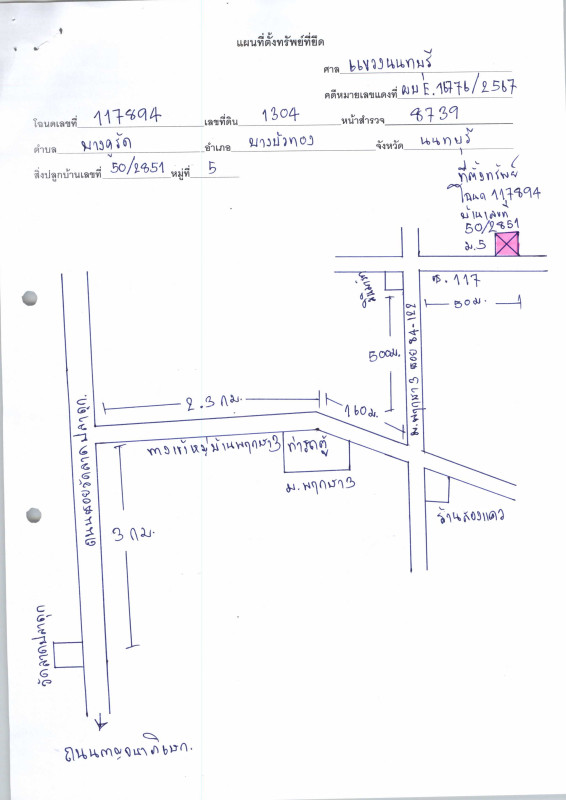 แผนที่ตั้งทรัพย์ที่ยึด
ศาล แขวงนนทบุรี
คดีหมายเลขแดงที่ ผบE.15776/2567
โฉนดเลขที่ 117894 เลขที่ดิน 1304 หน้าสำรวจ 8739
ตำบล บางคูรัด อำเภอ บางบัวทอง จังหวัด นนทบุรี
สิ่งปลูกบ้านเลขที่ 50/2851 หมู่ที่ 5
ที่ตั้งทรัพย์
โฉนด 117894
บ้านเลขที่
50/2851
ม.5
ซ.117
50 ม.
500ม.
ม.พฤกษา 3 ซอย 84-122
2.3 กม.
160 ม.
ทางเข้าหมู่บ้านพฤกษา3
ท่ารถตู้
ม.พฤกษา3
ร้านสองแคว
ถนนซอยวัดลาดปลาดุก.
3 กม.
วัดลาดปลาดุก
ถนนกาญจนาภิเษก.